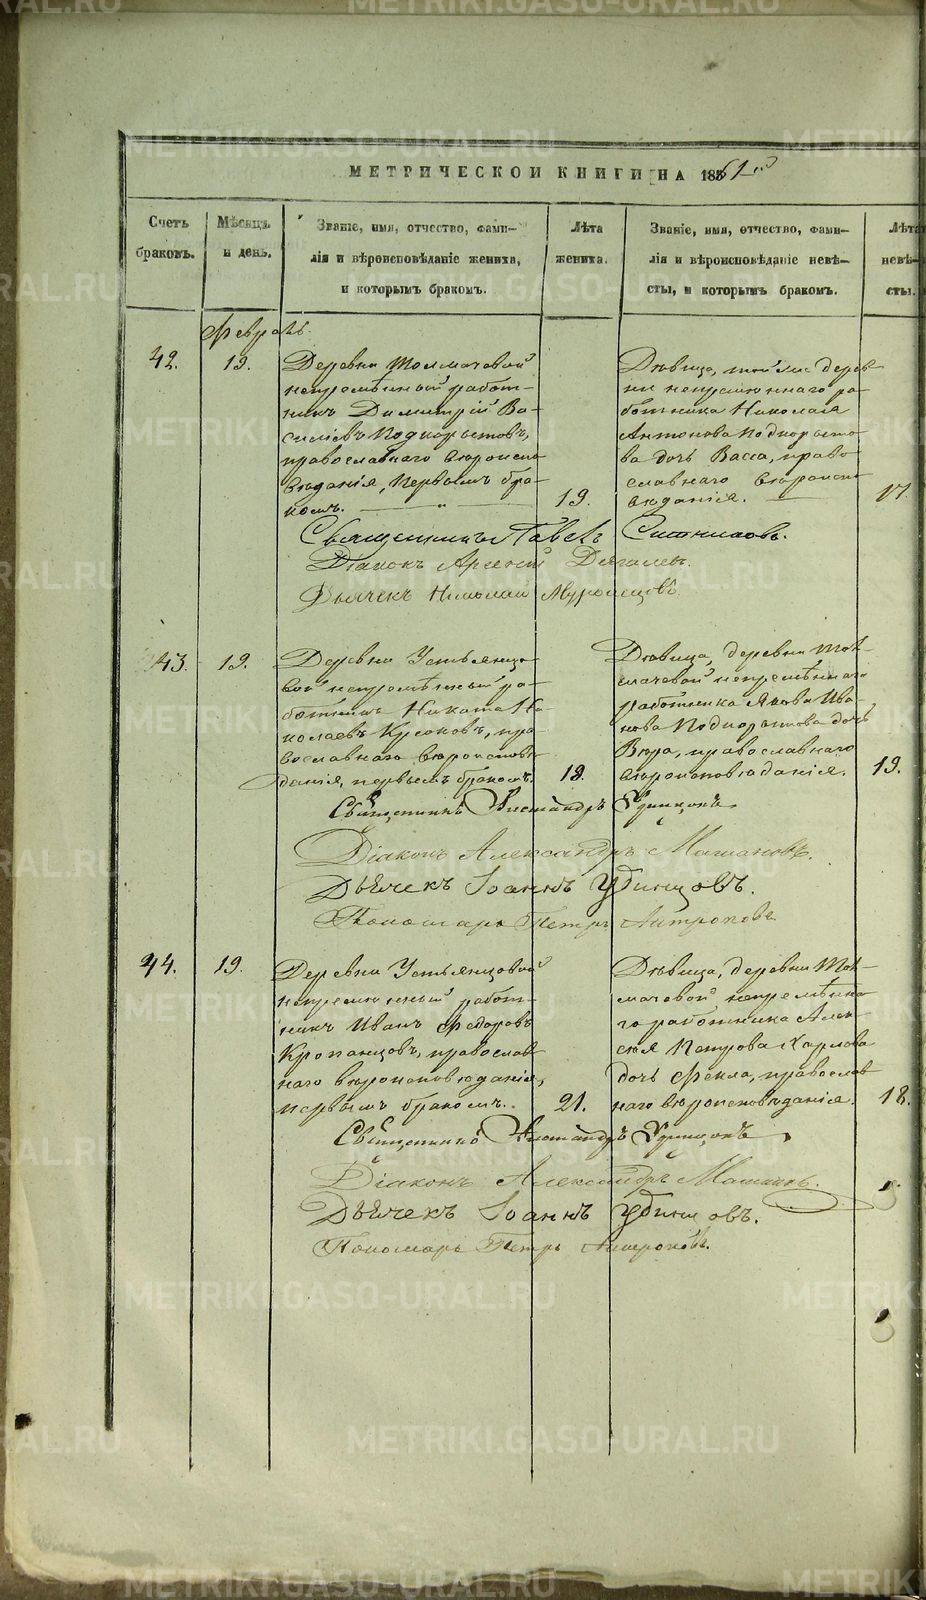 МЕТРИЧЕСКОЙ КНИГИ НА 1861й
Счетъ браковъ.
Мѣсяцъ и день.
Званіе, имя, отчество, фами-
лія и вѣроисповѣданіе жениха,
и которымъ бракомъ.
Лѣта жениха.
Званіе, имя, отчество, фами-
лія и вѣроисповѣданіе невѣ-
сты, и которымъ бракомъ.
Лѣта невѣ-
сты.
Февраль.
42.
19.
Деревни Толмачевой
непремѣнный работ-
никъ Димитрій Ва-
силіевъ Подкорытовъ,
православнаго вѣроиспо-
вѣданія, первымъ бра-
комъ.
19.
Дѣвица, той же дерев-
ни непремѣннаго ра-
ботника Николая
Антонова Подкорыто-
ва дочь Васса, право-
славнаго вѣроиспо-
вѣданія.
17.
Священникъ Павелъ Ситниковъ.
Діаконъ Арсеній Дягилевъ.
Дьячекъ Николай Муромцовъ.
43.
19.
Деревни Устьянцо-
вой непремѣнный ра-
ботникъ Никита Ни-
колаевъ, пра-
вославнаго вѣроисповѣ-
данія, первымъ бракомъ.
18.
Дѣвица, деревни Тол-
мачевой непремѣннаго
работника Якова Ива-
нова Подкорытова дочь
Вѣра, православнаго
вѣроисповѣданія.
19.
Священникъ Александръ Удинцовъ
Діаконъ Александръ Машановъ.
Дьячекъ Іоаннъ Удинцовъ.
Пономарь Петръ
44.
19.
Деревни Устьянцовой
непремѣнный работ-
никъ Иванъ Федоровъ
Кропанцовъ, православ-
наго вѣроисповѣданія,
первымъ бракомъ.
21.
Дѣвица, деревни Тол-
мачевой непремѣнна-
го работника Алек-
сѣя Петрова Карпова
дочь Фекла, православ-
наго вѣроисповѣданія.
18.
Священникъ Александръ Удинцовъ
Діаконъ Александръ Машановъ.
Дьячекъ Іоаннъ Удинцовъ.
Пономарь Петръ
METRIKI.GASO-URAL.RU